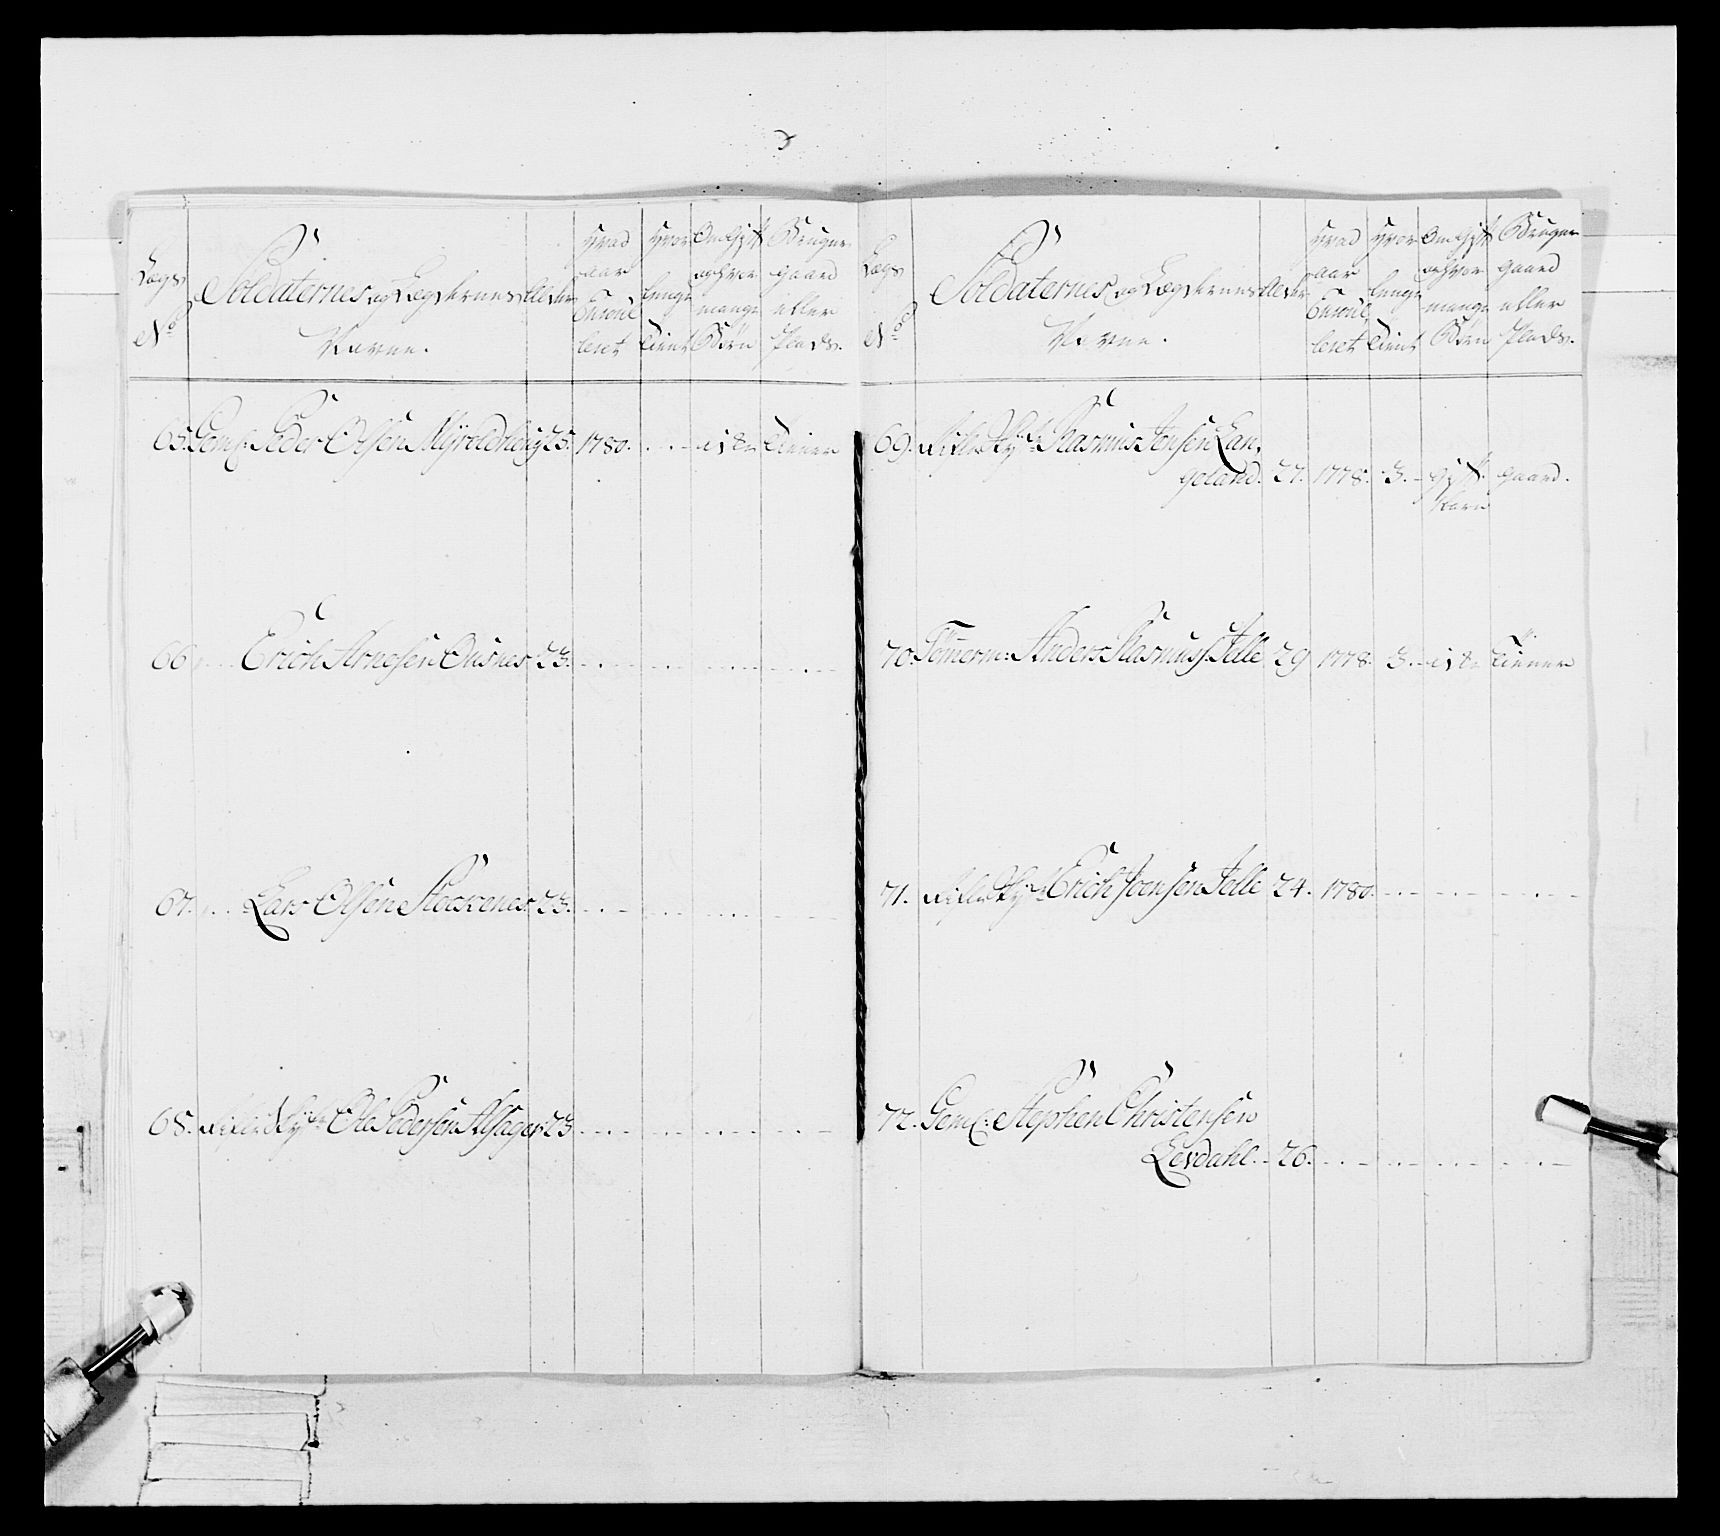 Lægs
No
Soldaternes og Lægdernes
Navne.
Alder
Hvad
aar
Enroul
leret
Hvor
lenge
tient
Om Gift
og hvor
mange
Børn
Bruger
gaard
eller
Plads.
65. Gem: Peder Olsen Myreldhaug 25. 1780. . . - ei 8r tiener
66. . . . Erich Arnesen Ousnes 23. . . . . . .
67. . . . Lars Olsen Stockenes 23. . . . . .
68. Ole Pedersen Alsager 23 . . . . .
Lægs
No
Soldaternes og Lægdernes
Navne.
Alder
Hvad
aar
Enroul
leret
Hvor
lenge
tient
Om Gift
og hvor
mange
Børn
Bruger
gaard
eller
Plads.
69. Rasmus Jensen Lan,
geland. 27. 1778. 3. - gift. gaard.
Barn
70. Tømerm: Anders Rasmus: Jelle 29 1778. 3. - ei 8r tiener
71. Erich Joensen Jelle 24. 1780. . . . . .
72. Gem: Stephen Christensen
Levdahl. - 26. . . . . . .